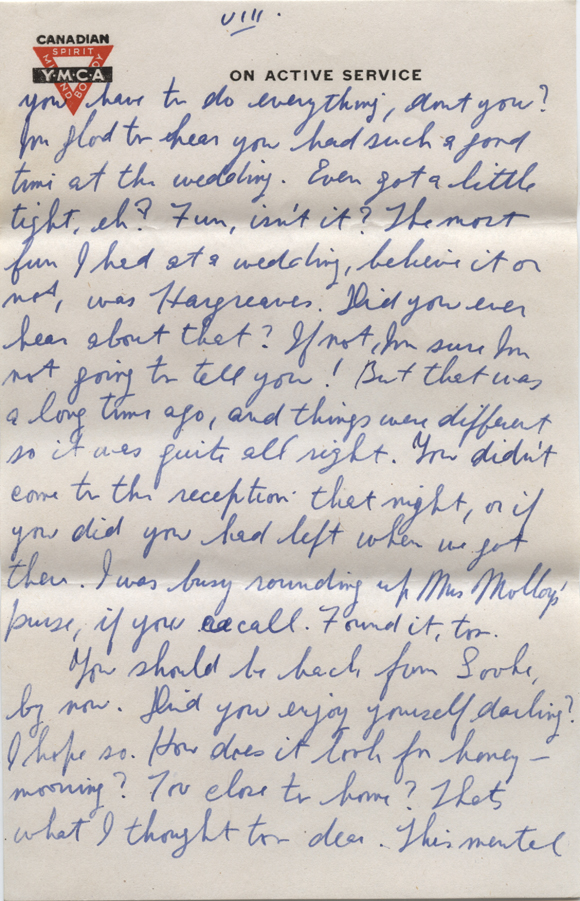 VIII.
CANADIAN
SPIRIT
Y·M·C·A
MIND BODY
ON ACTIVE SERVICE
you have to do everything, dont you?
Im glad to hear you had such a good
time at the wedding. Even got a little
tight, eh? Fun, isn't it? The most
fun I had at a wedding, believe it or
not, was Hargreaves. Did you ever
hear about that? If not, Im sure Im
not going to tell you! But that was
a long time ago, and things were different
so it was quite all right. You didn't
come to the reception that night, or if
you did you had left when we got
there. I was busy rounding up Mrs Molloy's
purse, if you recall. Found it, too.
You should be back from Sooke,
by now. Did you enjoy yourself darling?
I hope so. How does it look for honey-
mooning? Too close to home? Thats
what I thought too dear. This mental